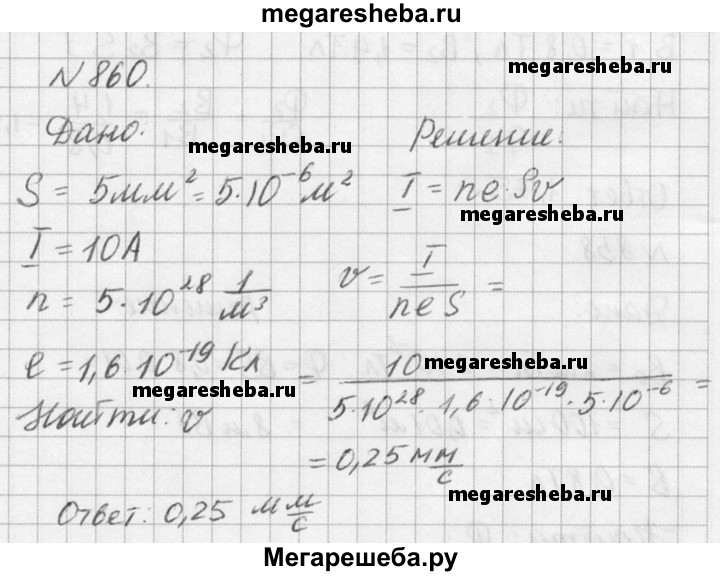 megaresheba.ru
N 860.
megaresheba.ru
Дано:
megaresheba.ru
Решение:
S = 5мм² = 5·10⁻⁶ м²
I = ne·Sv
megaresheba.ru
I = 10A
n = 5·10²⁸ 1/м³
v = I/neS =
e = 1,6·10⁻¹⁹ Кл
megaresheba.ru
= 10/5·10²⁸·1,6·10⁻¹⁹·5·10⁻⁶ =
megaresheba.ru
Найти: v
= 0,25 мм/с
megaresheba.ru
Ответ: 0,25 мм/с
Мегарешеба.ру